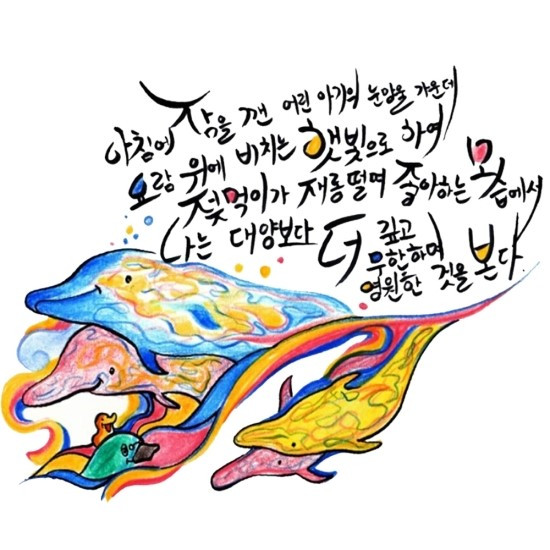 아침에 잠을 깬 어린 아기의 눈망울 가운데
요람 위에 비치는 햇빛으로 하여
젖먹이가 재롱떨며 좋아하는 모습에서
나는 대양보다 더 깊고
무한하며
영원한 것을 본다.